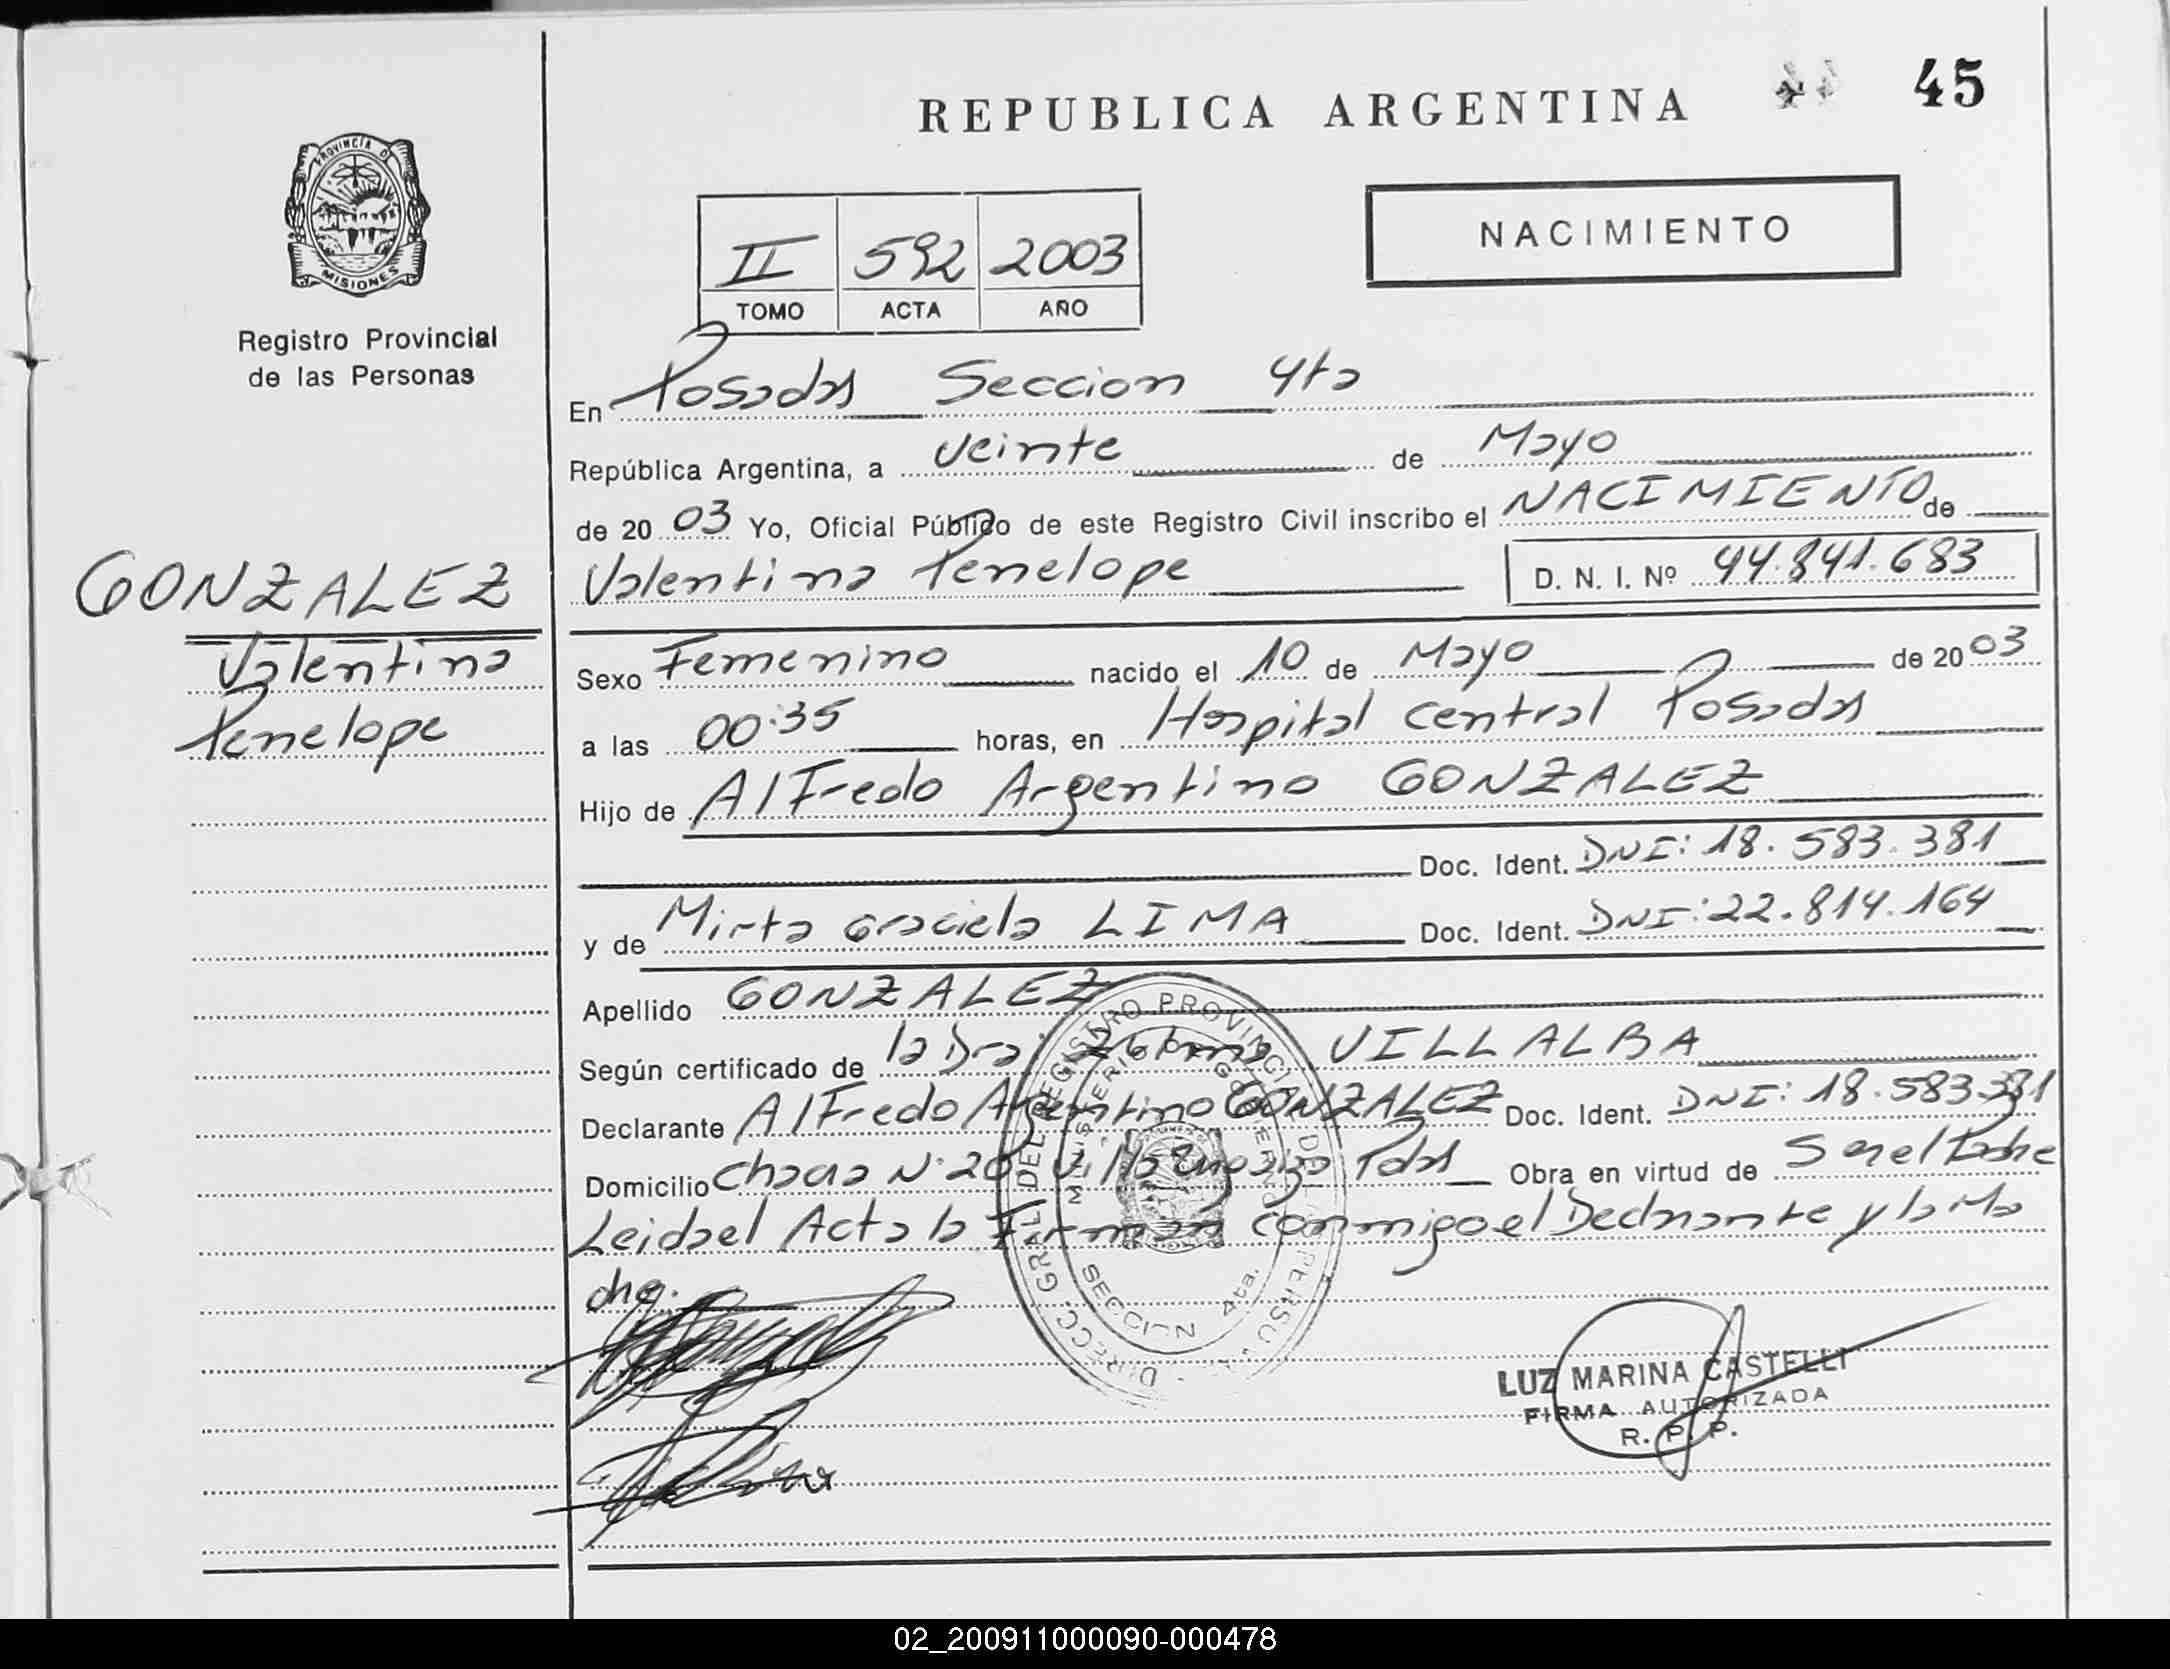 REPUBLICA ARGENTINA
45
PROVINCIA D
MISIONES
Registro Provincial
de las Personas
II 592 2003
TOMO ACTA AÑO
NACIMIENTO
En Posadas Seccion 4ta
República Argentina, a veinte de Mayo
de 20 03 Yo, Oficial Público de este Registro Civil inscribo el NACIMIENTO de
Valentina Penelope D. N. I. Nº 44.841.683
GONZALEZ
Valentina
Penelope
Sexo Femenino nacido el 10 de Mayo de 20 03
a las 00:35 horas, en Hospital Central Posadas
Hijo de Alfredo Argentino GONZALEZ
Doc. Ident. DNI: 18.583.381
y de Mirta Graciela LIMA Doc. Ident. DNI: 22.814.164
Apellido GONZALEZ
Según certificado de la Dra. VILLALBA
Declarante Alfredo Argentino GONZALEZ Doc. Ident. DNI: 18.583.381
Domicilio Chacra Nº 20 Villa Pdas Obra en virtud de Ser el Padre
Leida el Acta la Firman conmigo el Declarante y la Ma
dre.
DIRECC. GRAL. DEL REGISTRO PROVINCIAL DE LAS PERSONAS
MINISTERIO DE GOBIERNO
SECCION 4ta.
LUZ MARINA CASTELLI
FIRMA AUTORIZADA
R. P. P.
02_200911000090-000478